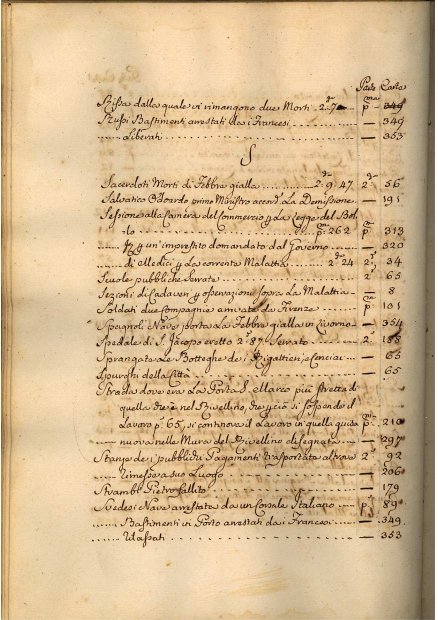 Parte Carte
Rissa dalla quale vi rimangono due Morti 2.ª 7 p.ma 349
Russi Bastimenti arrestati da i Francesi — 349
Liberati — 353
S
Sacerdoti Morti di Febbra gialla 2.ª 9. 47 2.ª 56
Salvatico Odoardo primo Ministro accord. La Demissione — 191
Sessione alla Camera del Commercio p La Legge del Bol
lo p.ª 262 p.ª 313
p un'imprestito domandato dal Governo — 320
di Medici p La corrente Malattia 2.ª 24 2.ª 34
Scuole pubbliche Serrate 2.ª 65
Sezioni di Cadaveri p osservazioni sopra La Malattia — 8
Soldati due Compagnie arrivate da Firenze p.ma 101
Spagnoli Nave porta La Febbra gialla in Livorno — 354
Spedale di S. Jacopo eretto 2.ª 87. Serrato 2.ª 188
Sprangate Le Botteghe de i Rigattieri, e Cenciai — 63
Spurghi della Città — 65
Strada dove era La Porta S. el larco più stretta di
quella che è nel Rivellino, che p ciò si sospende il
Lavoro p.ª 65, si continova il Lavoro in quella guisa p.ma 210
nuova nelle Mura del Rivellino disegnata — 297
Stanze de i pubblici Pagamenti trasportate altrove 2.ª 92
Rimessa a suo Luogo — 206
Strambi Pietro fallito — 179
Svedesi Nave arrestata da un Corsale Italiano p.ª 89
Bastimenti in Porto arrestati da i Francesi — 349
Rilassati — 353